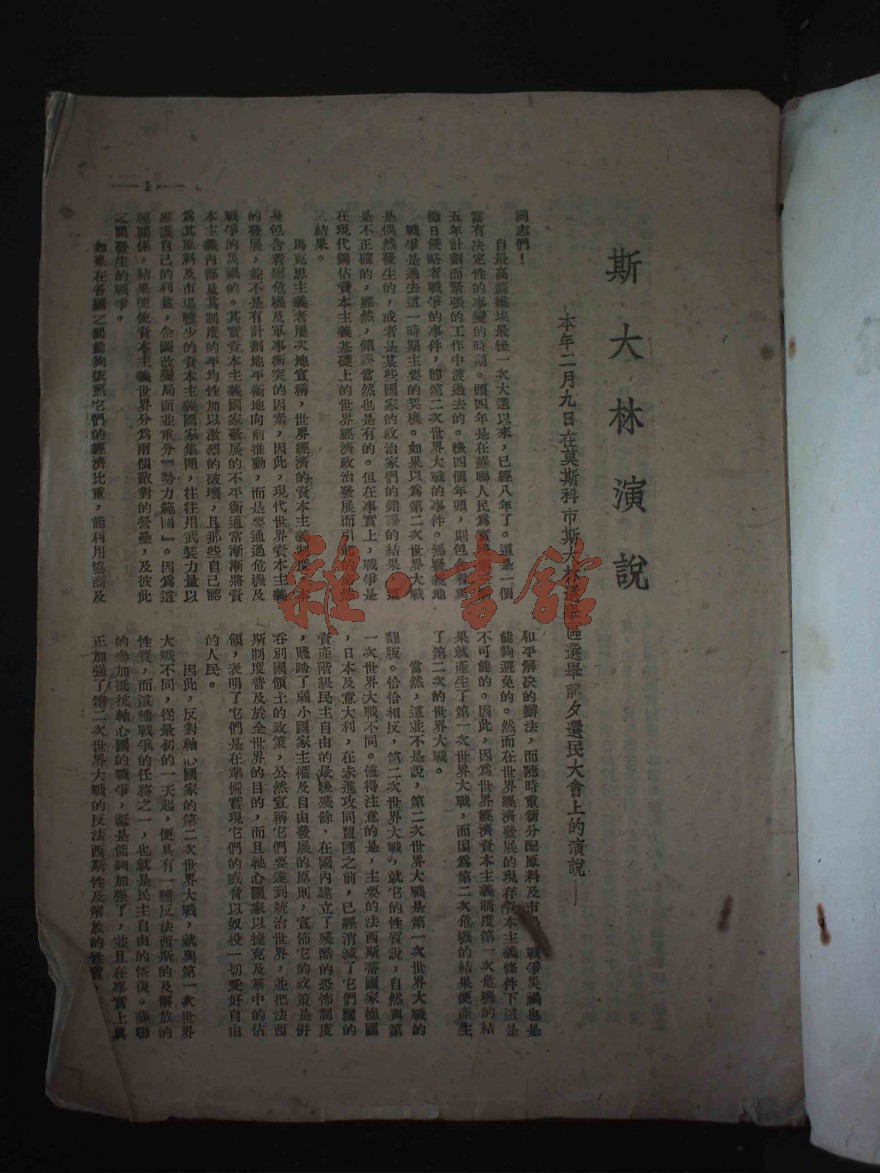 斯大林演說
——本年二月九日在莫斯科市斯大林選舉區選舉前夕選民大會上的演說——
同志們！
自最高蘇維埃最後一次大選以來，已經八年了。這是一個
富有決定性的事變的時期。頭四年是在蘇聯人民為實現第三個
五年計劃而緊張的工作中渡過去的。後四個年頭，則包含着與
德日侵略者戰爭的事件，即第二次世界大戰的事件。無疑義地
戰爭是過去這一時期主要的契機。如果以為第二次世界大戰
是偶然發生的，或者是某些國家的政治家們的錯誤的結果，這
是不正確的，雖然，錯誤當然也是有的。但在事實上，戰爭是
在現代獨佔資本主義基礎上的世界經濟政治發展而引起的必然
結果。
馬克思主義者屢次地宣稱，世界經濟的資本主義制度，本
身包含着總危機及軍事衝突的因素，因此，現代世界資本主義
的發展，並不是有計劃地平衡地向前推動，而是要通過危機及
戰爭的災禍的。其實資本主義國家發展的不平衡通常漸漸將資
本主義內部及其制度的平均性加以激烈的破壞，且那些自己認
為其原料及市場較少的資本主義國家集團，往往用武裝力量以
維護自己的利益，企圖改變局面並重分『勢力範圍』。因為這
種關係，結果便使資本主義世界分為兩個敵對的營壘，及彼此
之間發生的戰爭。
如果在各國之間能夠依照它們的經濟比重，能利用協商及
和平解決的辦法，而隨時重新分配原料及市場，戰爭災禍也是
能夠避免的。然而在世界經濟發展的現存資本主義條件下這是
不可能的。因此，因為世界經濟資本主義制度第一次危機的結
果就產生了第一次世界大戰，而因為第二次危機的結果便產生
了第二次的世界大戰。
當然，這並不是說，第二次世界大戰是第一次世界大戰的
翻版。恰恰相反，第二次世界大戰，就它的性質說，自然與第
一次世界大戰不同。值得注意的是，主要的法西斯蒂國家德國
，日本及意大利，在未進攻同盟國之前，已經消滅了它們國的
資產階級民主自由的最後殘餘，在國內建立了殘酷的恐怖制度
，賤踏了弱小國家主權及自由發展的原則，宣佈它的政策是併
吞別國領土的政策，公然宣稱它們要達到統治世界，並把法西
斯制度普及於全世界的目的，而且軸心國家以捷克及華中的佔
領，表明了它們是在準備實現它們的威脅以奴役一切愛好自由
的人民。
因此，反對軸心國家的第二次世界大戰，就與第一次世界
大戰不同，從最初的一天起，便具有一種反法西斯的及解放的
性質，而這種戰爭的任務之一，也就是民主自由的恢復。蘇聯
的參加抵抗軸心國的戰爭，祗是能夠加強了，並且在事實上真
正加強了第二次世界大戰的反法西斯性及解放的性質
雜·書館